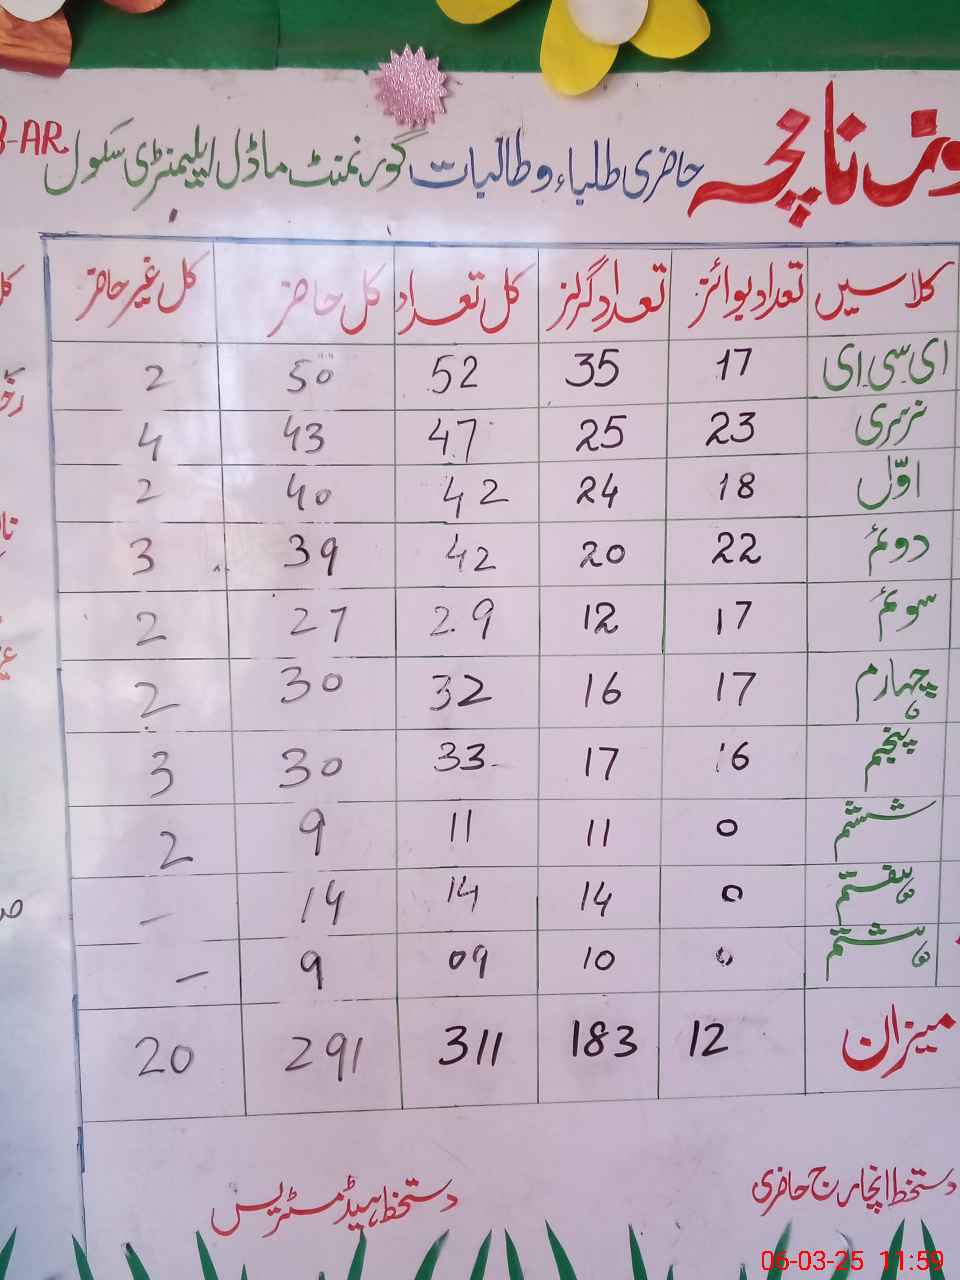 روزنامچہ حاضری طلباء و طالبات گورنمنٹ ماڈل ایلیمنٹری سکول
-AR.
کلاسیں تعداد بوائز تعداد گرلز کل تعداد کل حاضر کل غیر حاضر
ای سی ای 17 35 52 50 2
نرسری 23 25 47 43 4
اوّل 18 24 42 40 2
دوئم 22 20 42 39 3
سوئم 17 12 29 27 2
چہارم 17 16 32 30 2
پنجم 16 17 33 30 3
ششم 0 11 11 9 2
ہفتم 0 14 14 14 -
ہشتم 0 10 09 9 -
میزان 12 183 311 291 20
دستخط انچارج حاضری دستخط ہیڈ مسٹریس
06-03-25 11:59